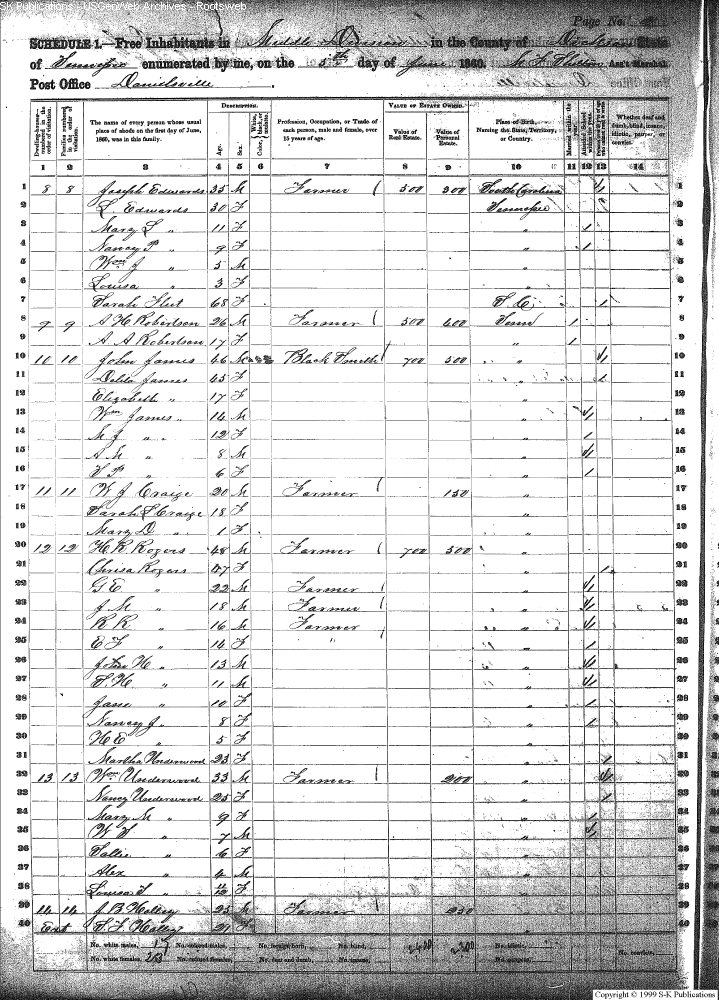 SK Publications - USGenWeb Archives - Rootsweb
Page No.
SCHEDULE 1.—Free Inhabitants in Middle Division in the County of Dickson State
of Tennessee enumerated by me, on the 5th day of June 1860. Ass't Marshal.
Post Office Danielsville
Dwelling-houses—numbered in the order of visitation.
Families numbered in the order of visitation.
The name of every person whose usual place of abode on the first day of June, 1860, was in this family.
DESCRIPTION.
Age.
Sex.
Color, White, black, or mulatto.
Profession, Occupation, or Trade of each person, male and female, over 15 years of age.
VALUE OF ESTATE OWNED.
Value of Real Estate.
Value of Personal Estate.
Place of Birth, Naming the State, Territory, or Country.
Married within the year.
Attended School within the year.
Whether deaf and dumb, blind, insane, idiotic, pauper, or convict.
1 2 3 4 5 6 7 8 9 10 11 12 13 14
1 8 8 Joseph Edwards 35 M Farmer 500 300 South Carolina 1 1
2 L. Edwards 30 F Tennessee 2
3 Mary L " 11 F " 1 3
4 Nancy P " 9 F " 1 4
5 Wm J " 5 M " 5
6 Louisa " 3 F " 6
7 Sarah 68 F S C 1 7
8 9 9 A H Robertson 26 M Farmer 500 400 Tenn 1 8
9 A A Robertson 17 F " 1 9
10 10 10 John James 46 M Black Smith 700 500 " 1 10
11 James 45 F " 1 11
12 Elizabeth " 17 F " 12
13 Wm James " 14 M " 1 13
14 M J " 12 F " 1 14
15 A M " 8 M " 1 15
16 S P " 6 F " 1 16
17 11 11 W J Craige 20 M Farmer 150 " 17
18 Sarah L Craige 18 F " 18
19 Mary D " 1 F " 19
20 12 12 H. R. Rogers 48 M Farmer 700 500 " 20
21 Rogers 47 F " 1 21
22 G E " 22 M Farmer " 1 22
23 J M " 18 M Farmer " 1 23
24 R R " 16 M Farmer " 1 24
25 E F " 14 F " " 1 25
26 John H " 13 M " 1 26
27 S H " 11 M " 1 27
28 Jane " 10 F " 1 28
29 Nancy J " 8 F " 1 29
30 H E " 5 F " 30
31 Martha Underwood 23 F " 1 31
32 13 13 Wm Underwood 33 M Farmer 200 " 1 32
33 Nancy Underwood 25 F " 1 33
34 Mary M " 9 F " 1 34
35 W " 7 M " 1 35
36 Sallie " 6 F " 36
37 Alex " 4 M " 37
38 Louisa J " F " 38
39 14 14 J B 25 M Farmer 250 " 39
40 S F 21 F " 40
No. white males, 17 No. colored males, No. foreign born, No. blind, 2400 No. idiotic,
No. white females, 23 No. colored females, No. deaf and dumb, No. insane, No. paupers, No. convicts,
Copyright © 1999 S-K Publications